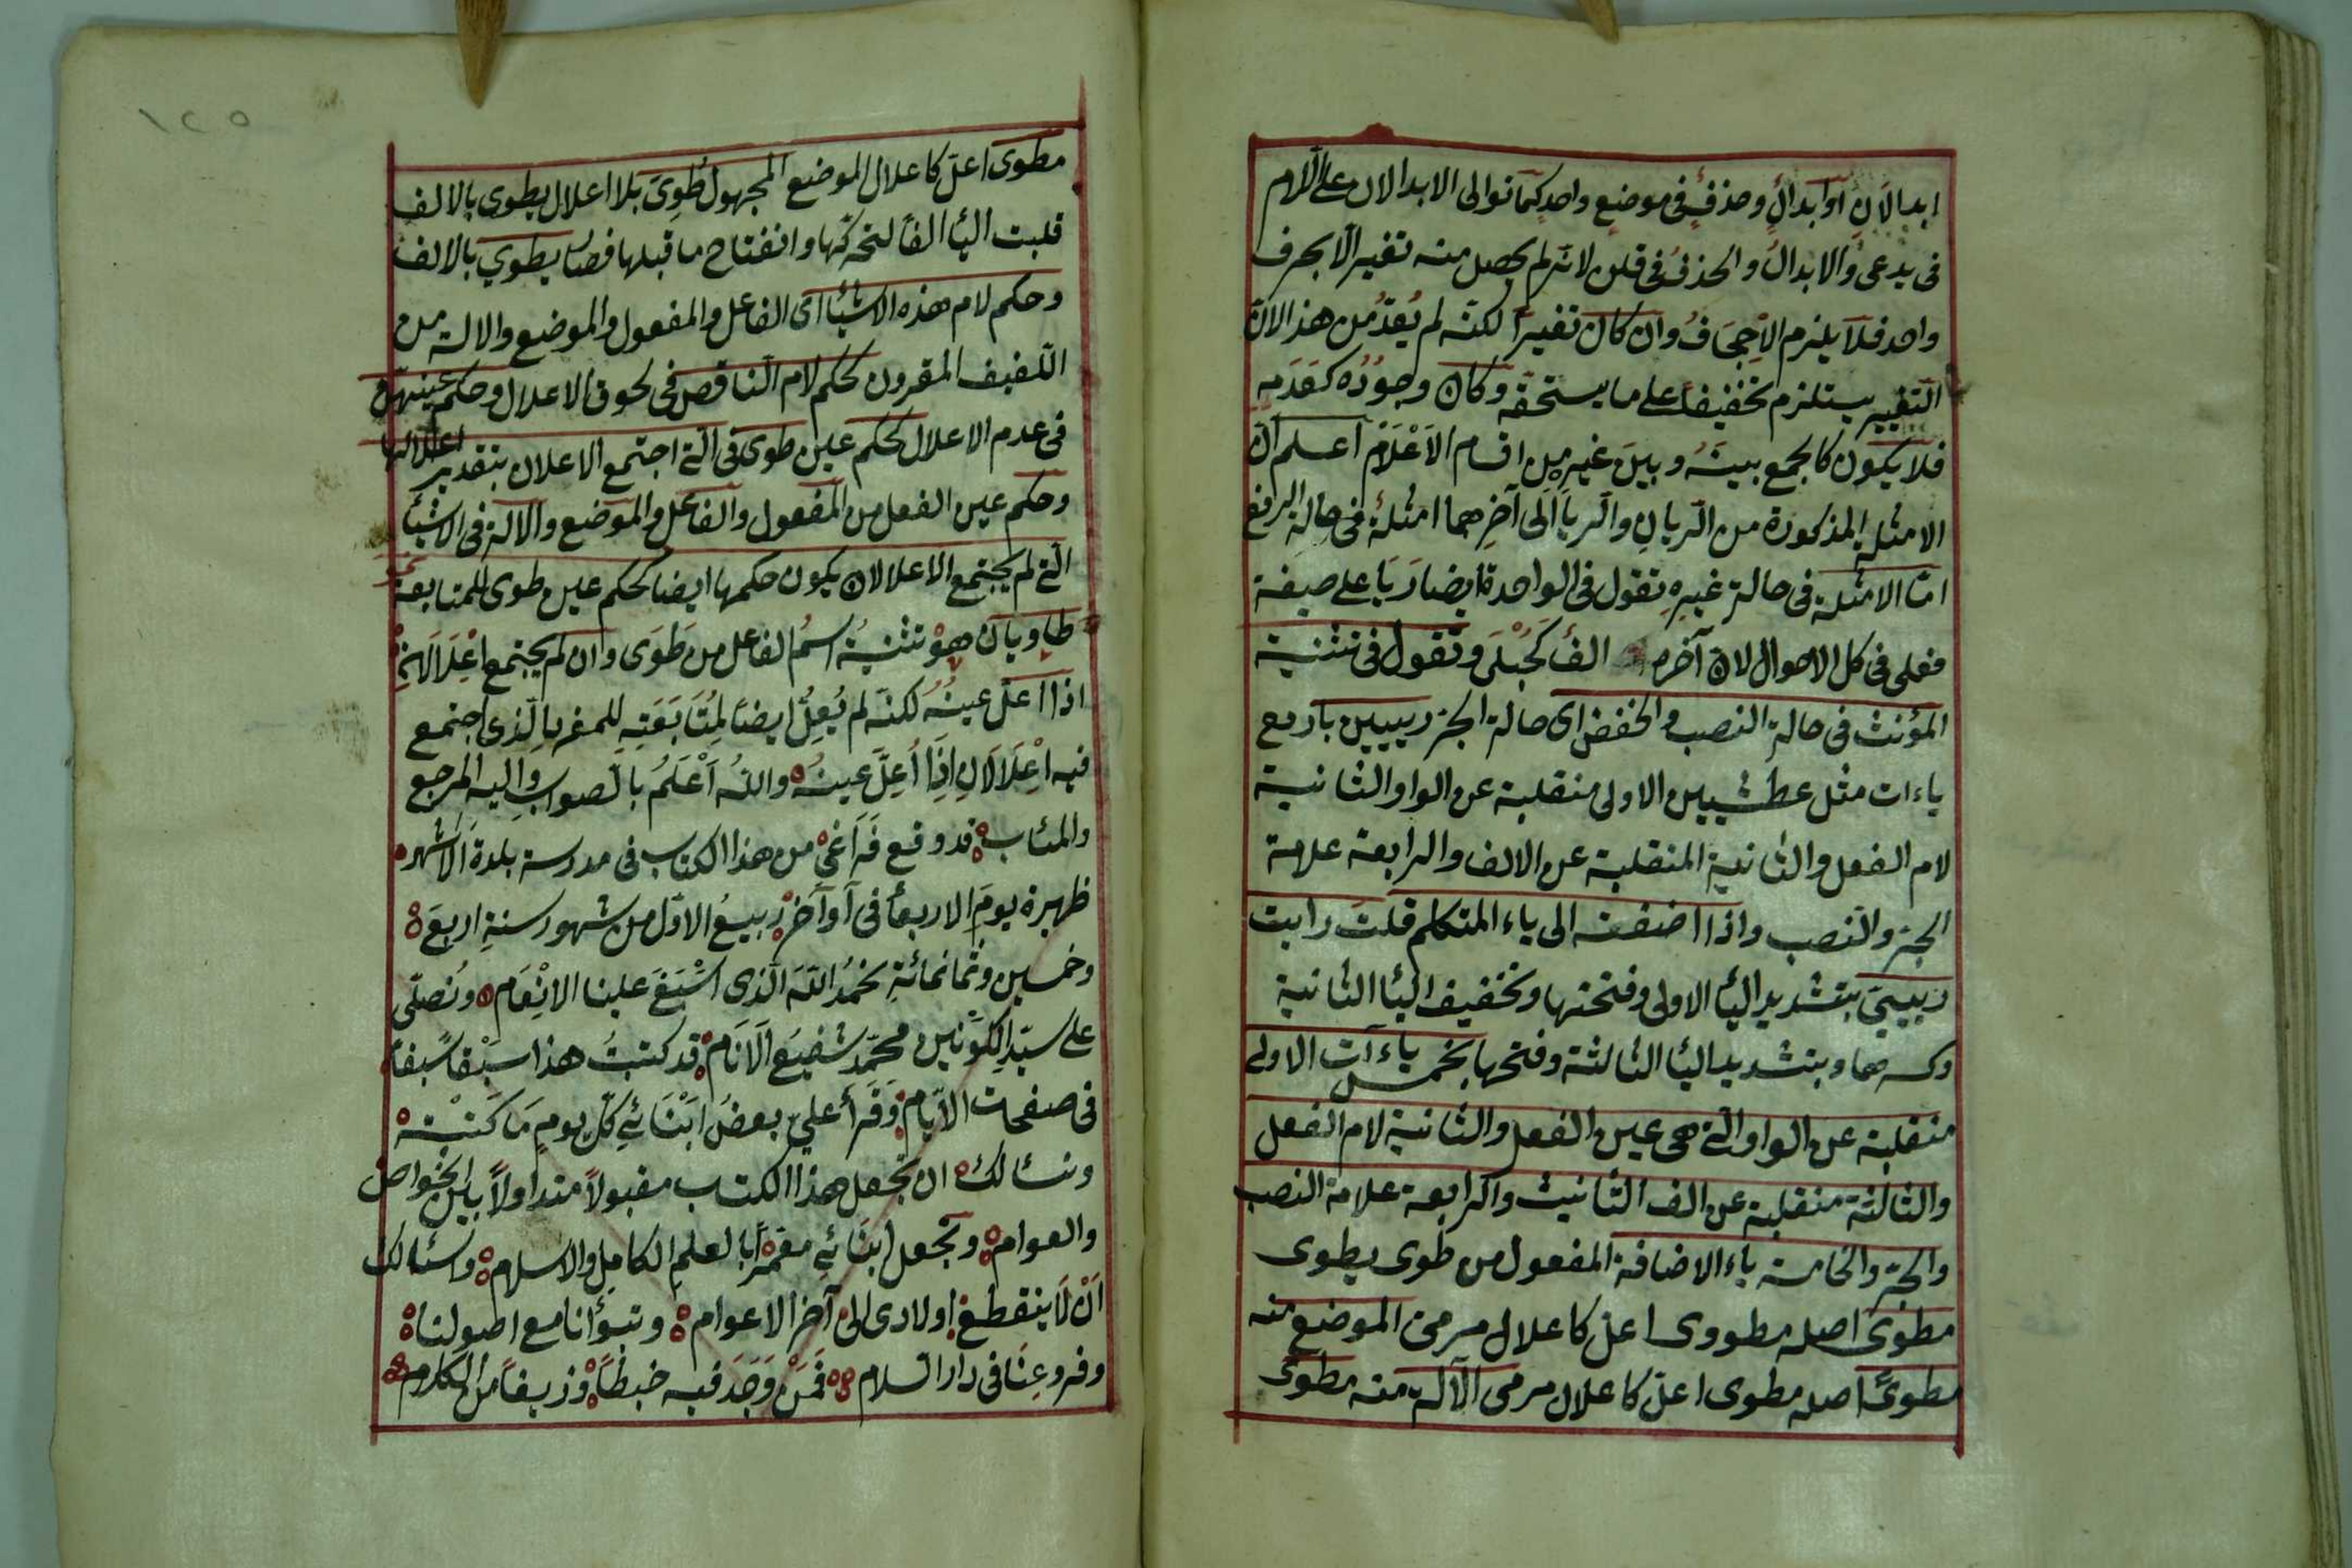 ابدالان او ابدال وحذف فى موضع واحد كما توالى الابدالان على اللام
فى يدعى والابدال والحذف فى قلن لانه لم يحصل منه تغير الا بحرف
واحد فلا يلزم الاجحاف وان كان تغييرا لكنه لم يعد من هذا لان
التغيير يستلزم تخفيفا على ما يستحقه وكان وجوده كعدمه
فلا يكون كالجمع بينه وبين غيره من اقسام الاعلام اعلم ان
الامثلة المذكورة من الريان والريا الى آخرهما امثلة فى حالة الرفع
اما الامثلة فى حالة غيره تقول فى الواحدة ايضا ريا على صيغة
فعلى فى كل الاحوال لان آخره الف كحبلى وتقول فى تثنية
المؤنث فى حالة النصب والخفض اى حالة الجر رييين باربع
ياءات مثل عطشيين الاولى منقلبة عن الواو والثانية
لام الفعل والثانية المنقلبة عن الالف والرابعة علامة
الجر والنصب واذا اضفته الى ياء المتكلم قلت رايت
رييى بتشديد اليا الاولى وفتحتها وتخفيف اليا الثانية
وكسرها وبتشديد اليا الثالثة وفتحها بخمس ياءآت الاولى
منقلبة عن الواو التى هى عين الفعل والثانية لام الفعل
والثالثة منقلبة عن الف التانيث والرابعة علامة النصب
والجر والخامسة ياء الاضافة المفعول من طوى يطوى
مطوى اصله مطووى اعل كاعلال مرمى الموضع منه
مطوى اصله مطوى اعل كاعلال مرمى الآلة منه مطوى
١٢٥
مطوى اعل كاعلال الموضع المجهول طوى بلا اعلال يطوى بالالف
قلبت اليا الفا لتحركها وانفتاح ما قبلها فصار يطوى بالالف
وحكم لام هذه الاشيا اى الفاعل والمفعول والموضع والالة من
اللفيف المقرون كحكم لام الناقص فى لحوق الاعلال وحكم عينهن
فى عدم الاعلال كحكم عين طوى فى التى اجتمع الاعلان بتقدير اعلالها
وحكم عين الفعل من المفعول والفاعل والموضع والالة فى الاشيا
التى لم يجتمع الاعلالان يكون حكمها ايضا كحكم عين طوى للمتابعة نحو
طاويان هو تثنية اسم الفاعل من طوى وان لم يجتمع اعلالان
اذا اعل عينه لكنه لم يعل ايضا لمتابعته للمفرد الذى اجتمع
فيه اعلالان اذا اعل عينه والله اعلم بالصواب واليه المرجع
والمئاب قد وقع فراغى من هذا الكتاب فى مدرسة بلدة الاشهر
ظهيرة يوم الاربعا فى اوآخر ربيع الاول من شهور سنة اربع
وخمسين وثمانمائة نحمد الله الذى اسبغ علينا الانعام ونصلى
على سيد الكونين محمد شفيع الانام قد كتبت هذا سبقا سبقا
فى صفحات الايام وقرأ على بعض ابنائى كل يوم ما كتبته
ونسئالك ان تجعل هذا الكتاب مقبولا متداولا بين الخواص
والعوام وتجعل ابنائى مقمرا بالعلم الكامل والاسلام ونسئالك
ان لا ينقطع اولادى الى آخر الاعوام وتبوأنا مع اصولنا
وفروعنا فى دار السلام فمن وجد فيه خبطا وزيفا من الكلام